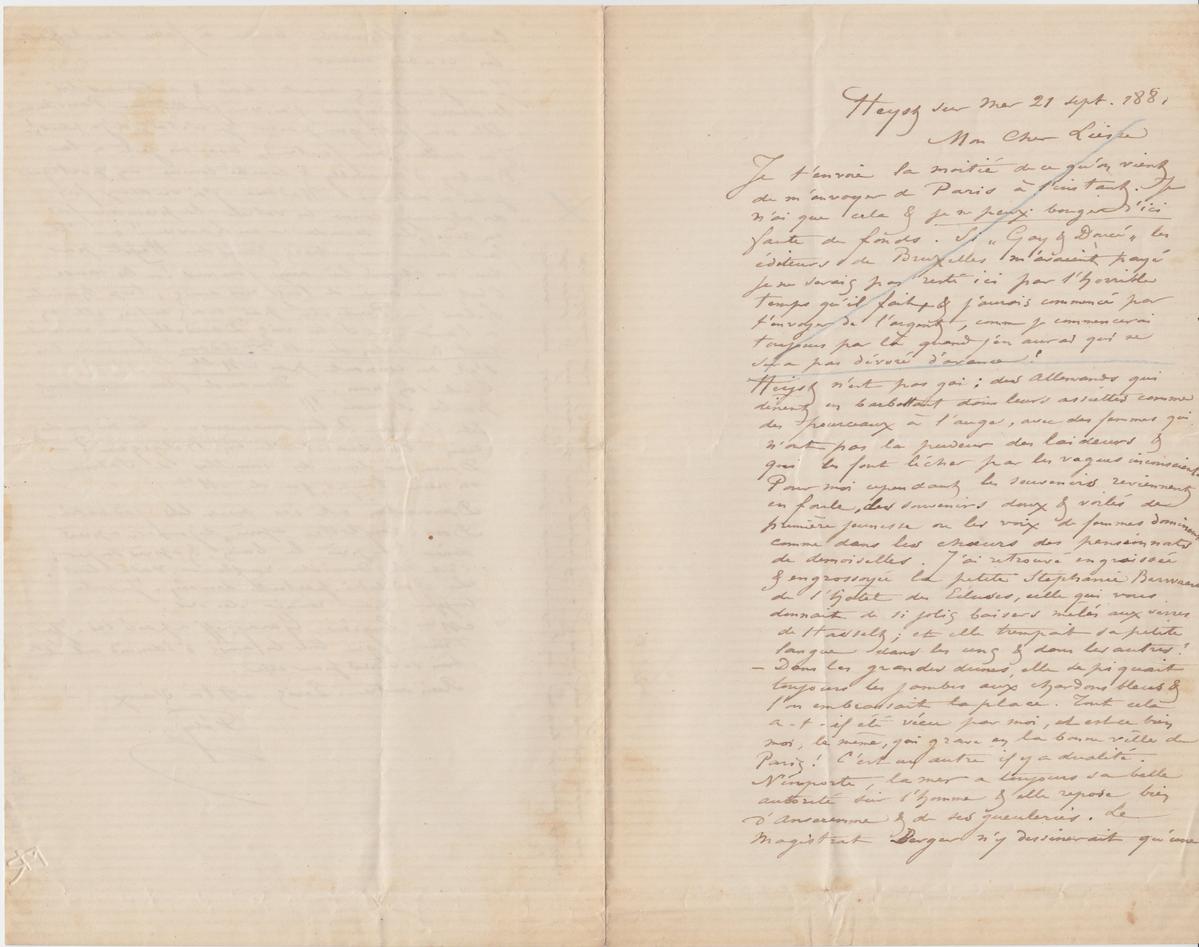 Heyst sur Mer 21 sept. 188
Mon Cher Liesse
Je t'envoie la moitié de ce qu'on vient
de m'envoyer de Paris à l'instant. Je
n'ai que cela & je ne peux bouger d'ici
faute de fonds. Si „Gay & Doucé„ les
éditeurs de Bruxelles m'avaient payé
je ne serais pas resté ici par l'horrible
temps qu'il fait & j'aurais commencé par
t'envoyer de l'argent, comme je commencerai
toujours par là quand j'en aurai qui ne
sera pas dévoré d'avance!
Heyst n'est pas gai; des Allemands qui
dinent en barbottant dans leurs assiettes comme
des pourceaux à l'auge, avec des femmes qui
n'ont pas la pudeur des laideurs &
qui les font lécher par les vagues inconscientes
Pour moi cependant les souvenirs reviennent
en foule, des souvenirs doux & voilés de
première jeunesse ou les voix de femmes dominent
comme dans les chœurs des pensionnats
de demoiselles. J'ai retrouvé engraissée
& engrossoyée la petite Stephanie
de l'hôtel des Ecluses, celle qui vous
donnait de si jolis baisers mêlés aux verres
de Hasselt; et elle trempait sa petite
langue dans les uns & dans les autres!
— Dans les grandes dunes, elle se piquait
toujours les jambes aux chardons bleus &
l'on embrassait la place. Tout cela
a-t-il été vécu par moi, et est-ce bien
moi, le même, qui grave en la bonne ville de
Paris! C'est un autre il y a dualité.
N'importe, la mer a toujours sa belle
autorité sur l'homme & elle repose bien
d'Anseremme & de ses gueuleries. Le
Magistrat Berger n'y dessinerait qu'une